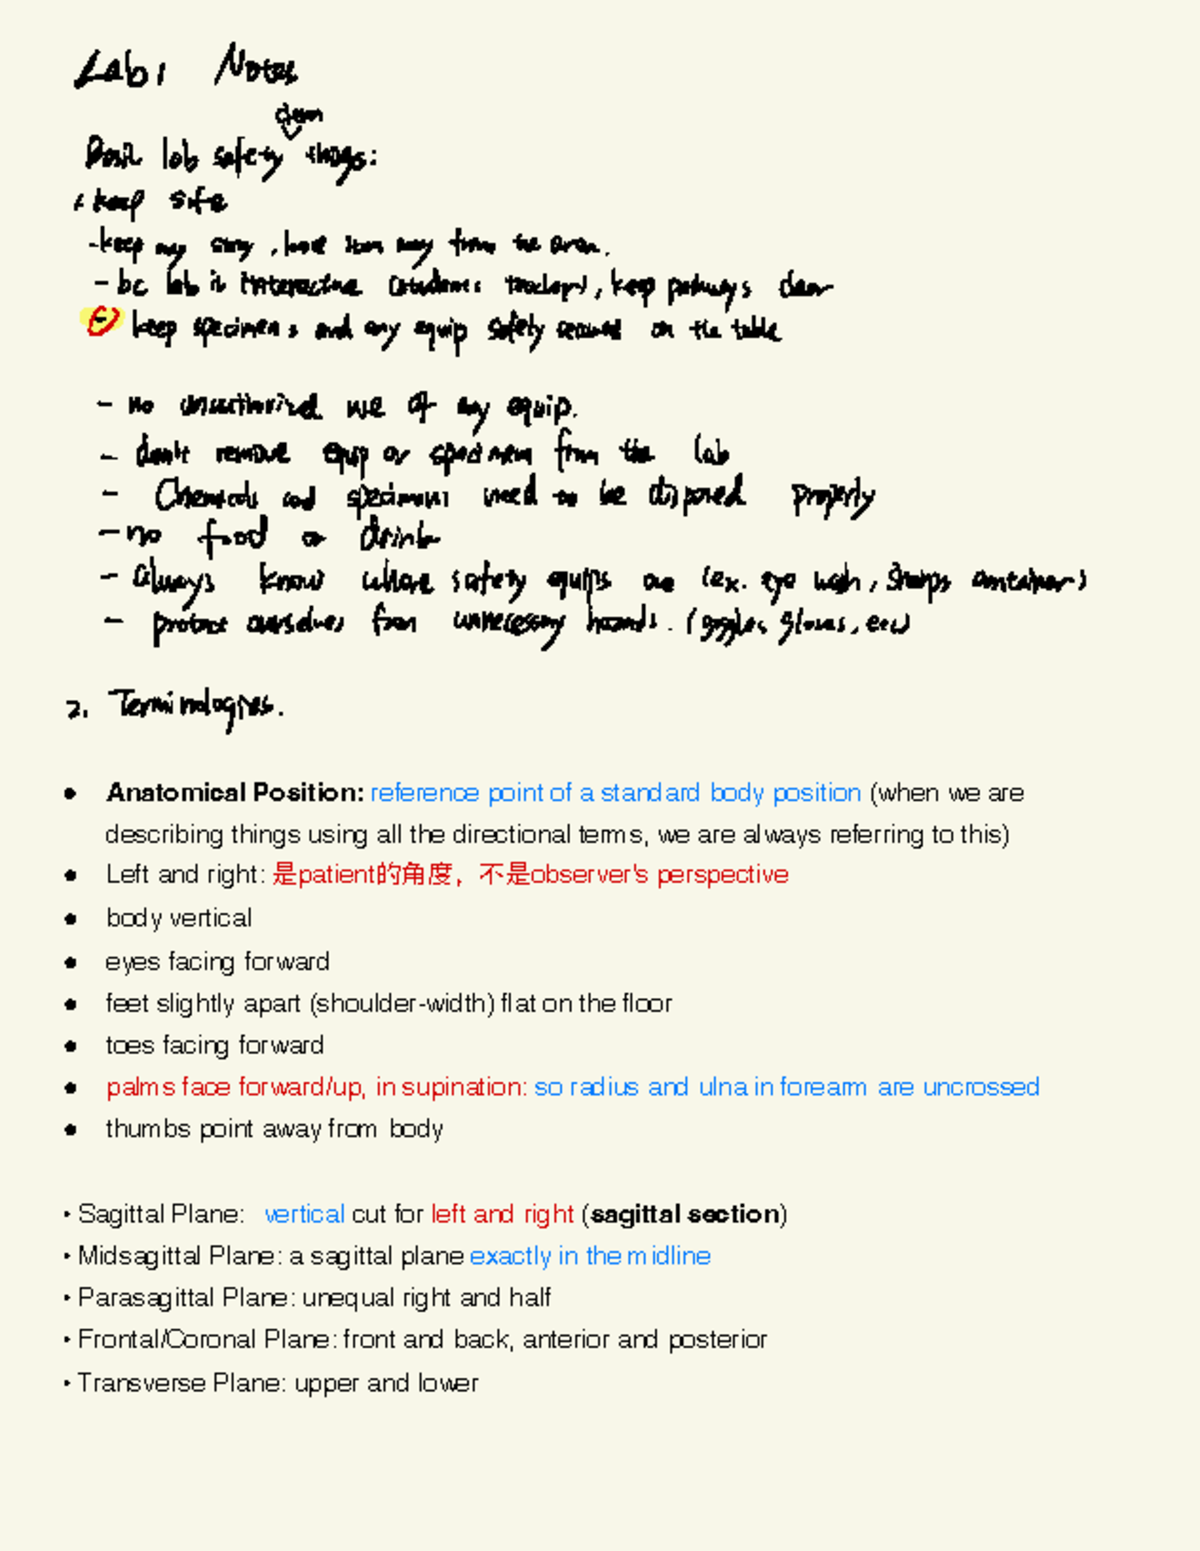 Lab 1 Notes
lab safety things:
1. keep safe
- keep my , from the area.
- bc lab is interactive , keep pathways clear
keep specimens and any equip safely secured on the table
- no unauthorized use of any equip.
- don't remove equip or specimens from the lab
- Chemicals and specimens need to be disposed properly
- no food or drink
- always know where safety equips are (ex. eye wash, sharps containers)
- protect ourselves from unnecessary hazards. (goggles, gloves, etc)
2. Terminologies.
● Anatomical Position: reference point of a standard body position (when we are
describing things using all the directional terms, we are always referring to this)
● Left and right: 是patient的角度，不是observer's perspective
● body vertical
● eyes facing forward
● feet slightly apart (shoulder-width) flat on the floor
● toes facing forward
● palms face forward/up, in supination: so radius and ulna in forearm are uncrossed
● thumbs point away from body
• Sagittal Plane: vertical cut for left and right (sagittal section)
• Midsagittal Plane: a sagittal plane exactly in the midline
• Parasagittal Plane: unequal right and half
• Frontal/Coronal Plane: front and back, anterior and posterior
• Transverse Plane: upper and lower